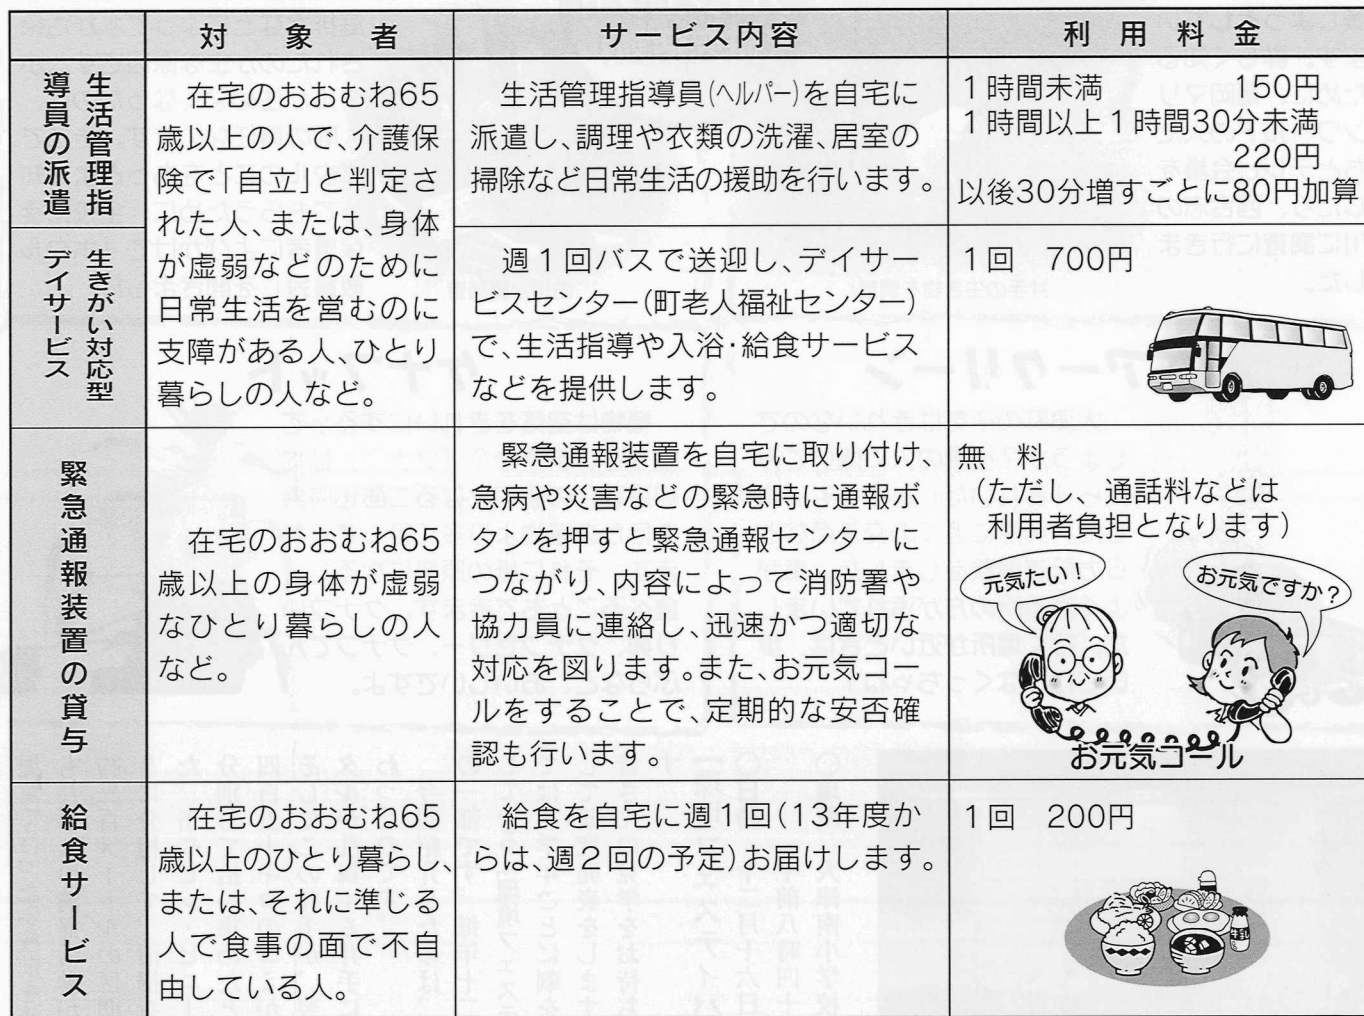 対象者
サービス内容
利用料金
生活管理指
導員の派遣
在宅のおおむね65
歳以上の人で、介護保
険で「自立」と判定さ
れた人、または、身体
が虚弱などのために
日常生活を営むのに
支障がある人、ひとり
暮らしの人など。
生活管理指導員(ヘルパー)を自宅に
派遣し、調理や衣類の洗濯、居室の
掃除など日常生活の援助を行います。
1時間未満 150円
1時間以上1時間30分未満
220円
以後30分増すごとに80円加算
生きがい対応型
デイサービス
週1回バスで送迎し、デイサー
ビスセンター(町老人福祉センター)
で、生活指導や入浴・給食サービス
などを提供します。
1回 700円
緊急通報装置の貸与
在宅のおおむね65
歳以上の身体が虚弱
なひとり暮らしの人
など。
緊急通報装置を自宅に取り付け、
急病や災害などの緊急時に通報ボ
タンを押すと緊急通報センターに
つながり、内容によって消防署や
協力員に連絡し、迅速かつ適切な
対応を図ります。また、お元気コー
ルをすることで、定期的な安否確
認も行います。
無料
(ただし、通話料などは
利用者負担となります)
元気たい!
お元気ですか?
お元気コール
給食サービス
在宅のおおむね65
歳以上のひとり暮らし、
または、それに準じる
人で食事の面で不自
由している人。
給食を自宅に週1回(13年度か
らは、週2回の予定)お届けします。
1回 200円
牛乳